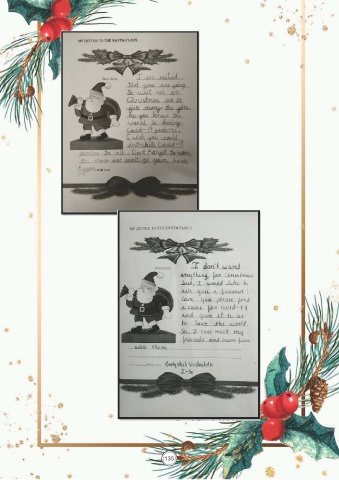 MY LETTER TO THE SANTA CLAUS
Dear Santa,
I am excited
that you are going
to visit us on
Christmas eve to
give away the gifts.
As you know the
world is facing
Covid-19 pandemic.
I wish you could
distribute Covid-19
vaccine to all. Don't forget to wear
the mask and sanitize your hands.
MY LETTER TO THE SANTA CLAUS
Dear Santa,
I don't want
anything for Christmas
but, I would like to
ask you a favour.
Can you please find
a cure for Covid-19
and give it to us
to save the world.
So I can meet my
friends and have fun
with them.
135